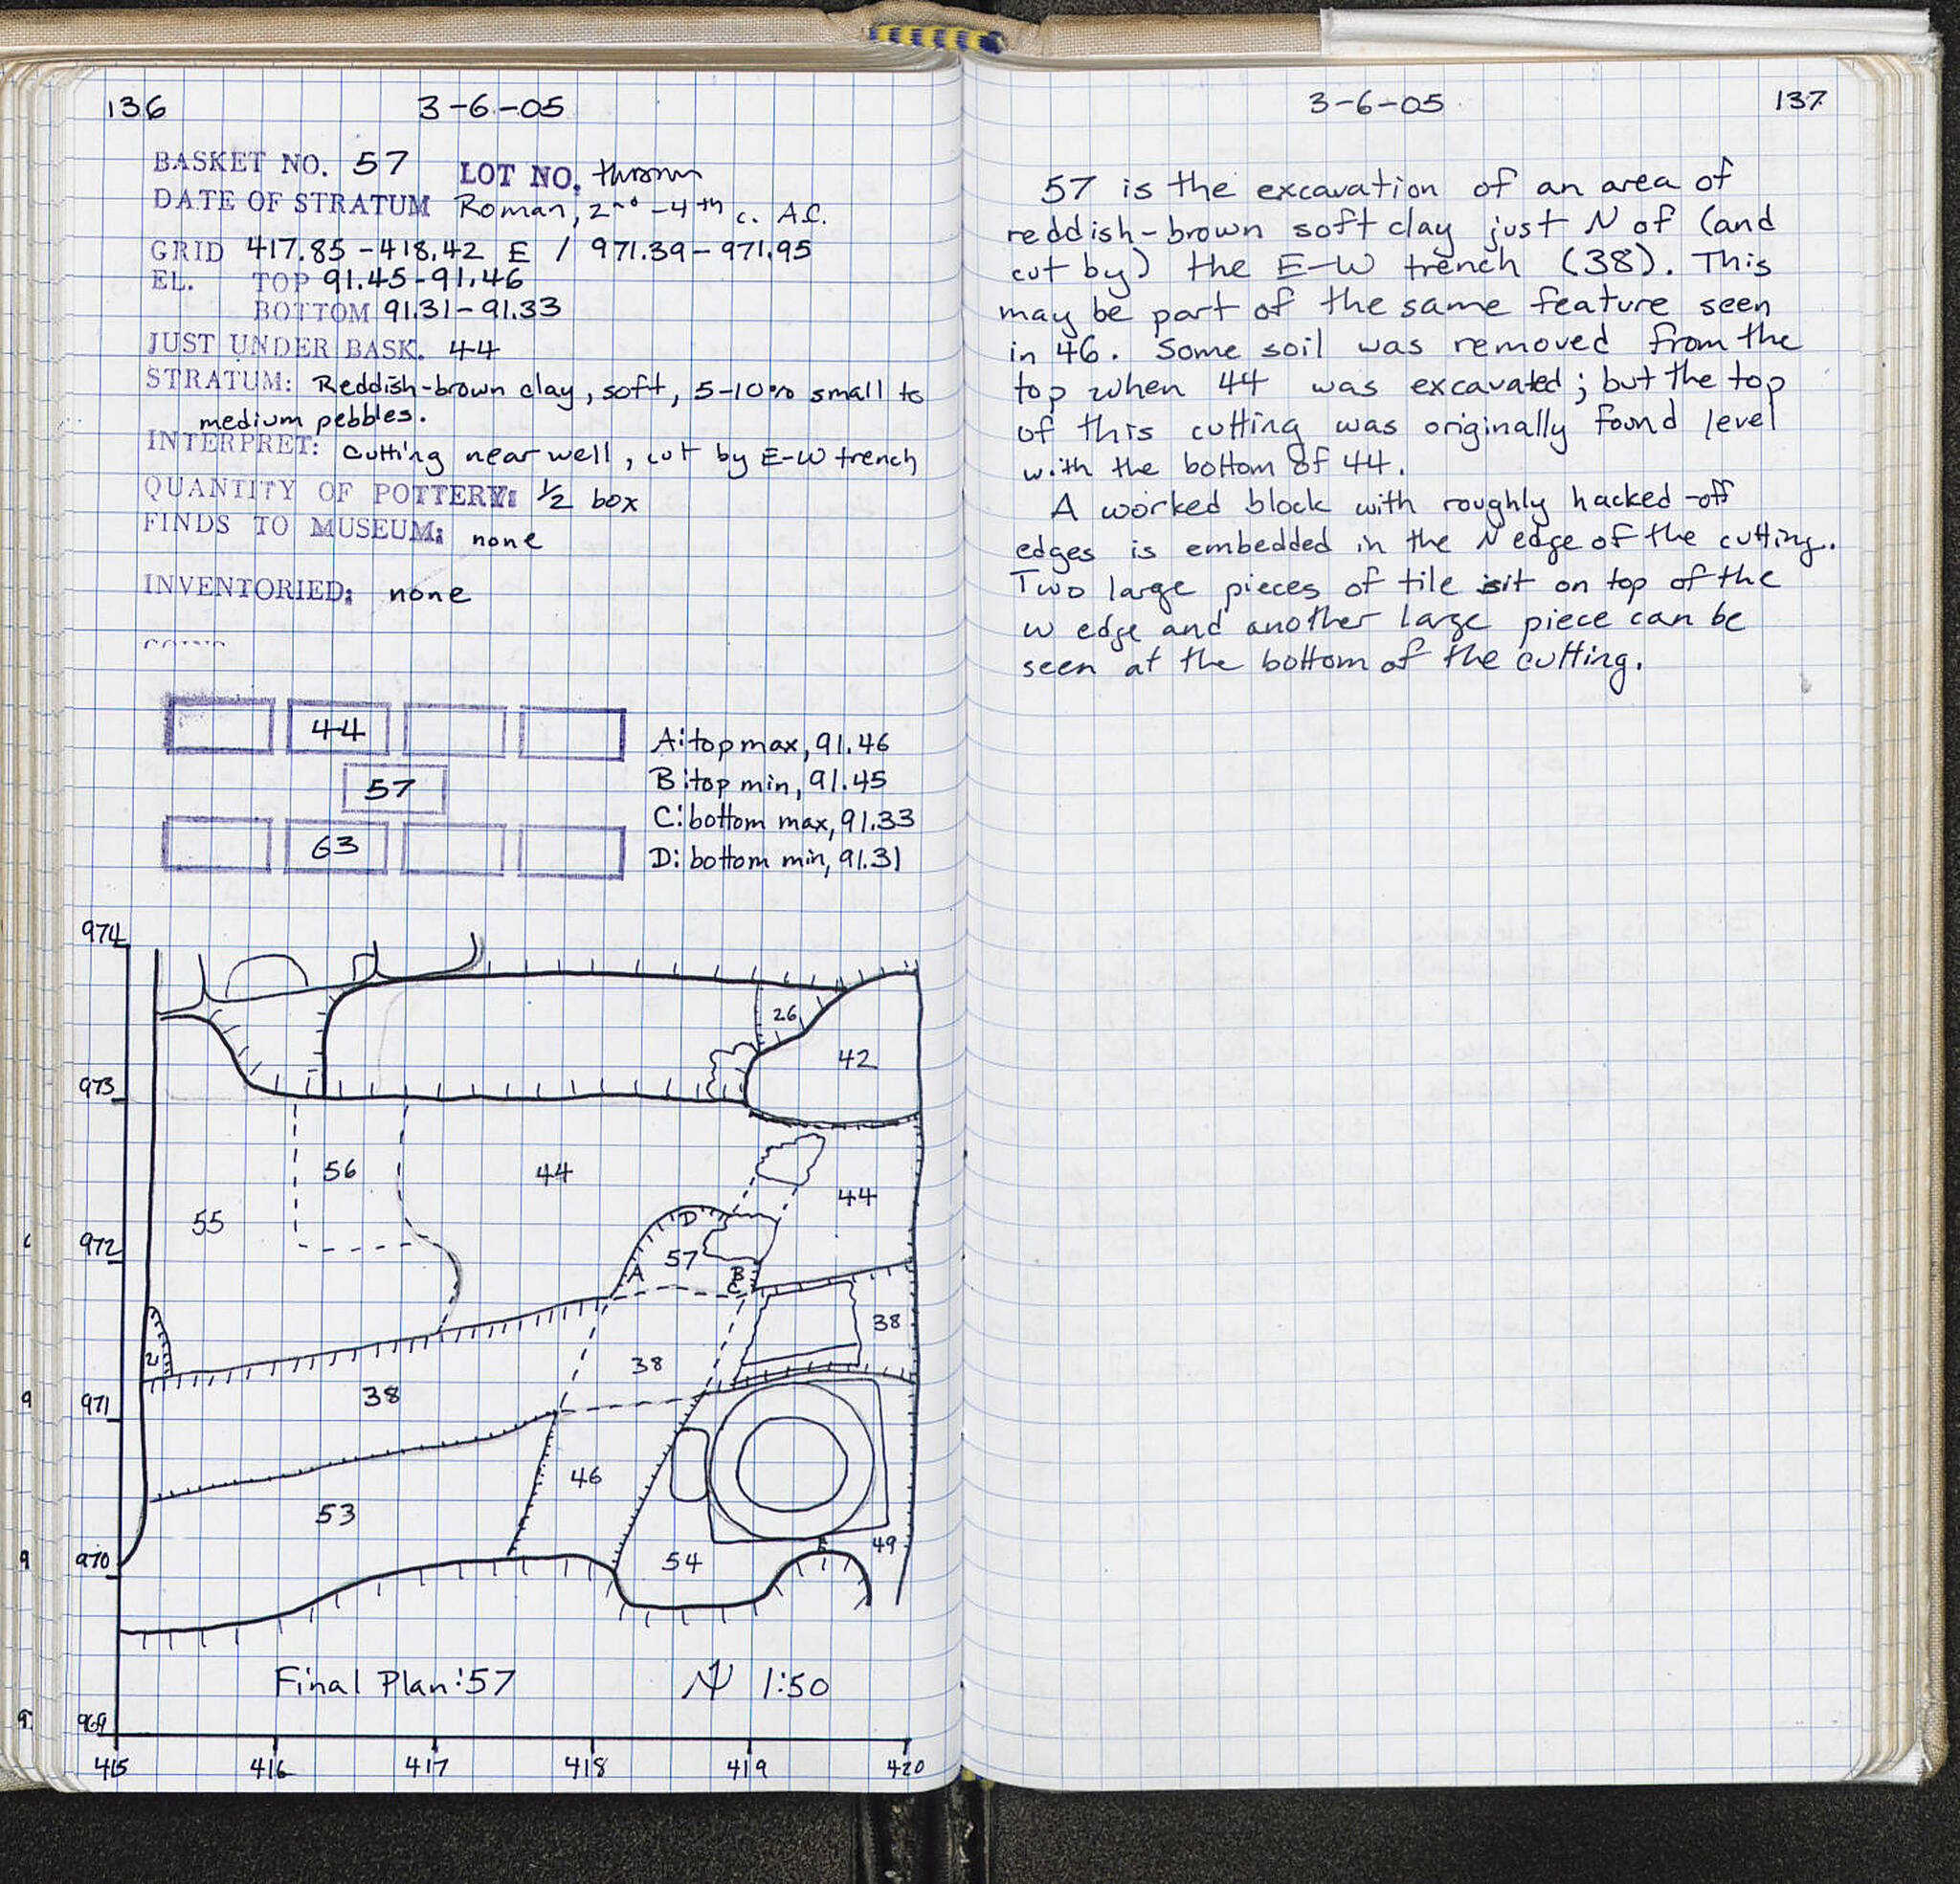 136
3-6-05
BASKET NO. 57 LOT NO. thrown
DATE OF STRATUM Roman, 2nd-4th c. A.C.
GRID 417.85-418.42 E / 971.39-971.95
EL. TOP 91.45-91.46
BOTTOM 91.31-91.33
JUST UNDER BASK. 44
STRATUM: Reddish-brown clay, soft, 5-10% small to
medium pebbles.
INTERPRET: Cutting near well, cut by E-W trench
QUANTITY OF POTTERY: 1/2 box
FINDS TO MUSEUM: none
INVENTORIED: none
44
57
63
A: top max, 91.46
B: top min, 91.45
C: bottom max, 91.33
D: bottom min, 91.31
974
973
972
971
970
969
26
42
56
44
44
55
D
57
A
B
C
38
38
38
46
53
54
49
Final Plan: 57
N 1:50
415 416 417 418 419 420
3-6-05
137
57 is the excavation of an area of
reddish-brown soft clay just N of (and
cut by) the E-W trench (38). This
may be part of the same feature seen
in 46. Some soil was removed from the
top when 44 was excavated; but the top
of this cutting was originally found level
with the bottom of 44.
A worked block with roughly hacked-off
edges is embedded in the N edge of the cutting.
Two large pieces of tile sit on top of the
W edge and another large piece can be
seen at the bottom of the cutting.